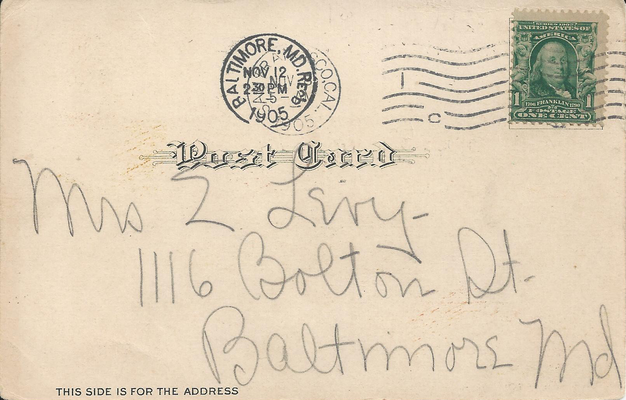 SERIES 1902
UNITED STATES OF
AMERICA
1 FRANKLIN 1
POSTAGE
ONE CENT
BALTIMORE, MD. REC'D
NOV 12
2 30 PM
1905
CO. CAL.
NOV
5-
1905
Post Card
Mrs Z. Levy-
1116 Bolton St.
Baltimore Md
THIS SIDE IS FOR THE ADDRESS